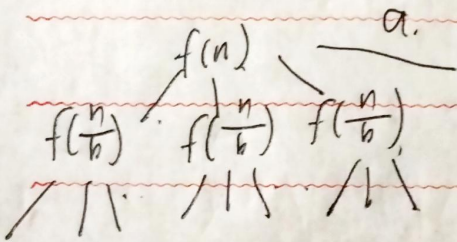 a.
f(n)
f(n/b) f(n/b) f(n/b)